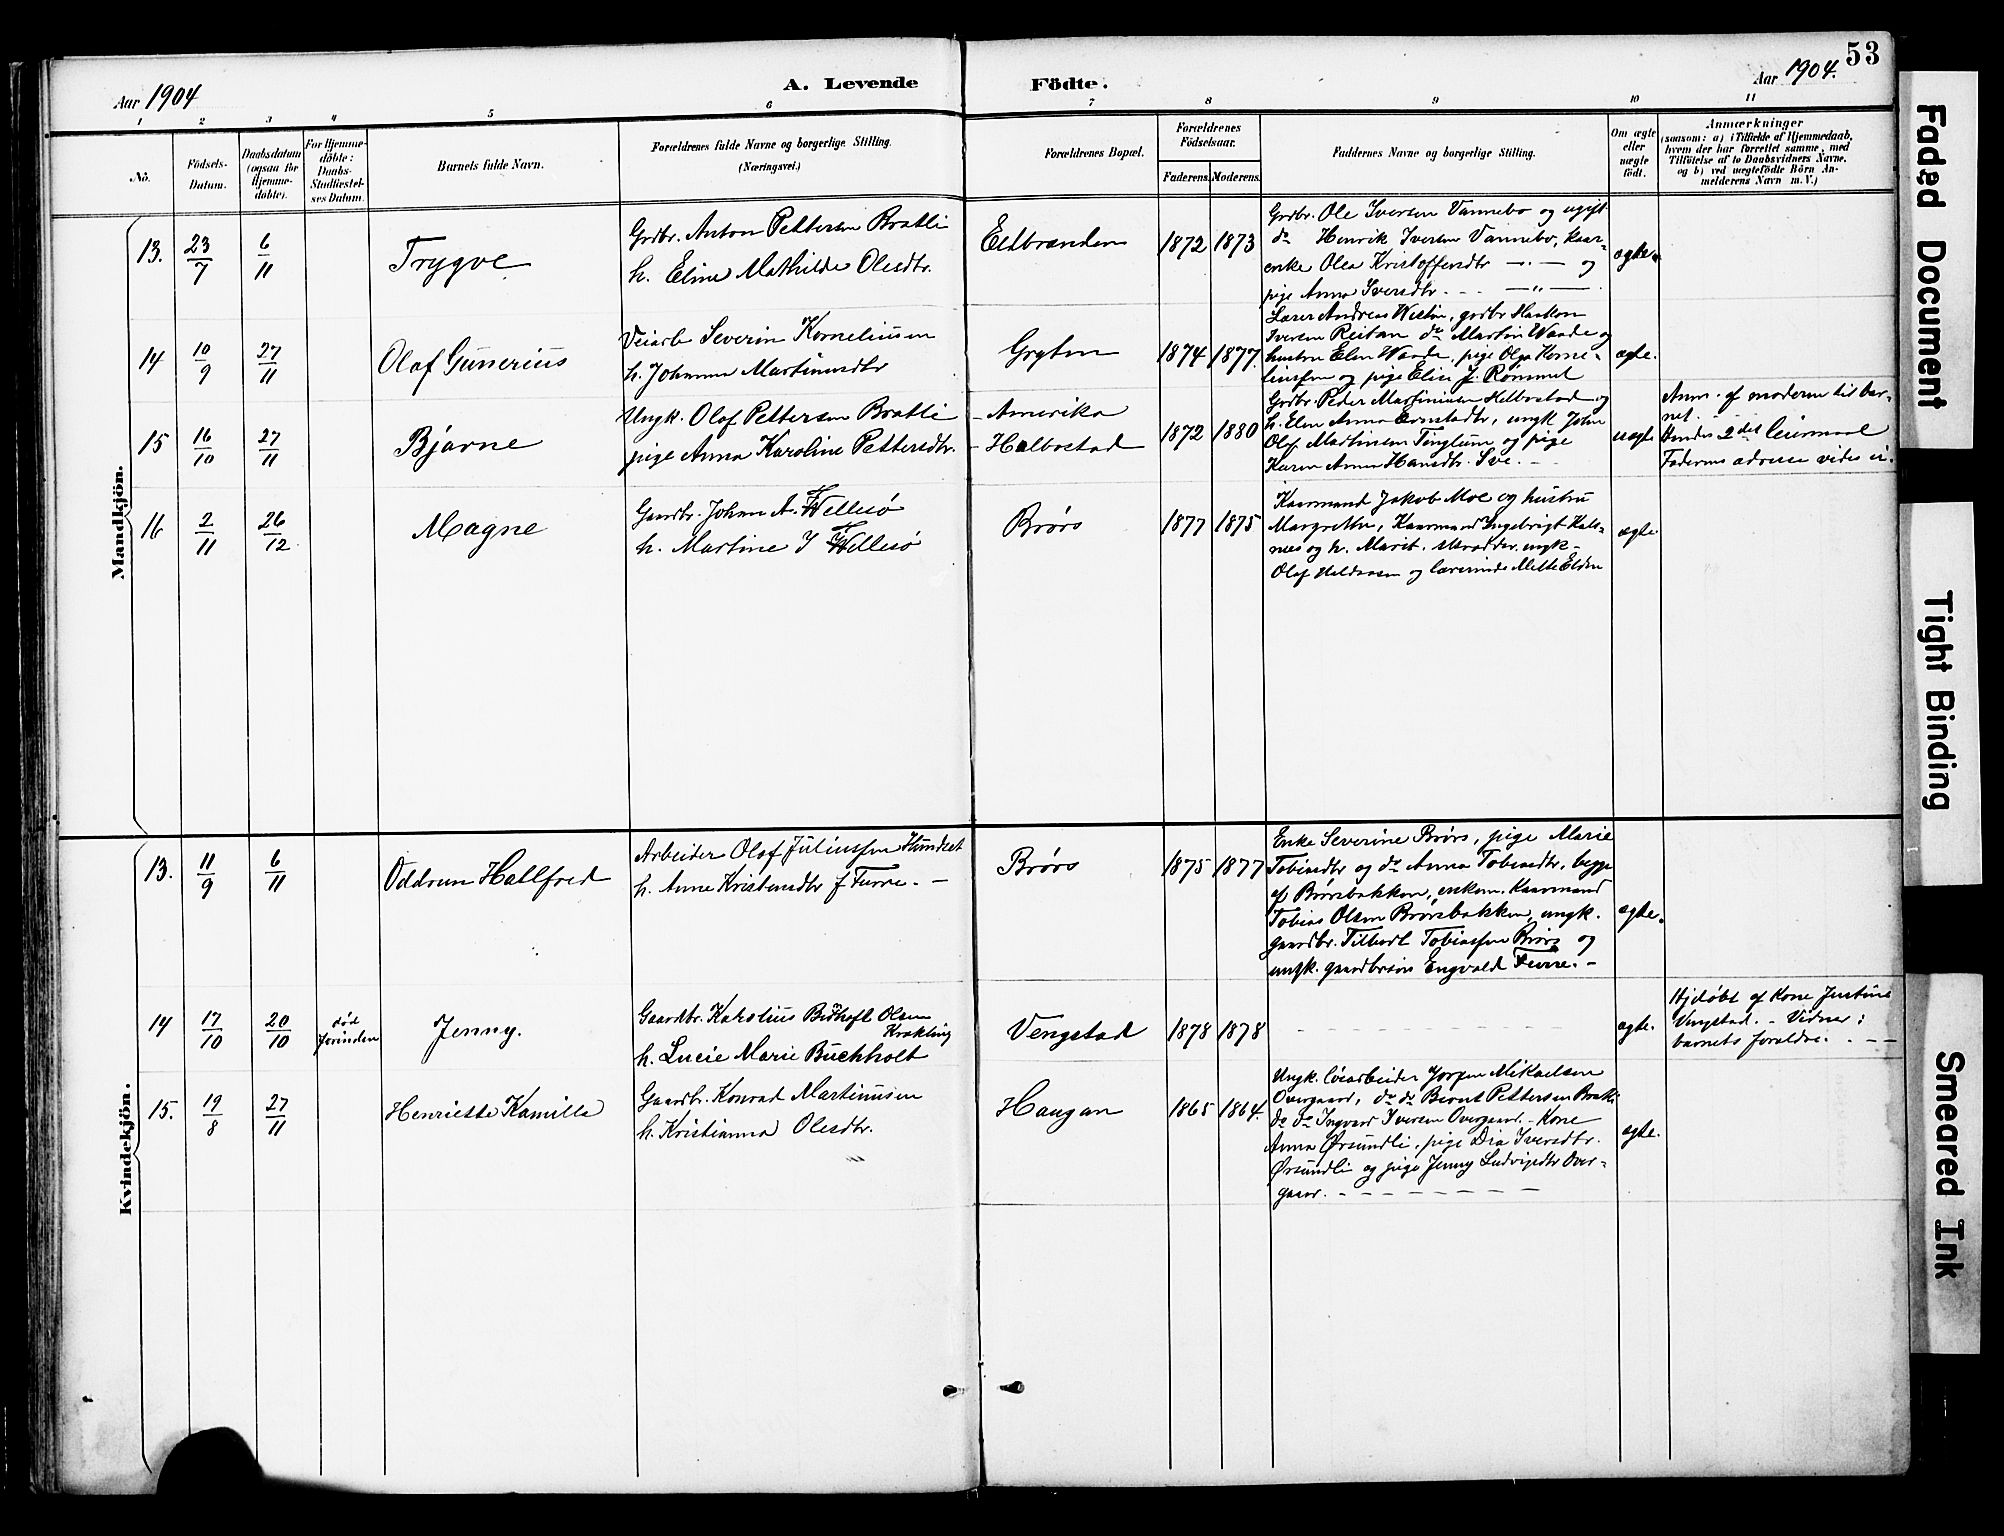 53
Aar 1904
A. Levende Födte.
Aar 1904.
1 2 3 4 5 6 7 8 9 10 11
No.
Födsels-
Datum.
Daabsdatum
(ogsaa for
Hjemme-
döbte).
For Hjemme-
döbte:
Daabs-
Stadfæstel-
ses Datum.
Barnets fulde Navn.
Forældrenes fulde Navne og borgerlige Stilling.
(Næringsvei.)
Forældrenes Bopæl.
Forældrenes
Födselsaar.
Faderens.
Moderens.
Faddernes Navne og borgerlige Stilling.
Om ægte
eller
uægte
födt.
Anmærkninger
(saasom: a) i Tilfælde af Hjemmedaab,
hvem der har forrettet samme, med
Tilföielse af to Daabsvidners Navne,
og b) ved uægtefödte Börn An-
melderens Navn m. V.)
Mandkjön.
13. 23/7 6/11
Trygve
Grdbr. Anton Pettersen Bratli
h. Eline Mathilde Olesdtr.
Eldbranden
1872 1873
Grdbr. Ole Iversen Vannebo og ugift
do Henrik Iversen Vannebo, kaar-
enke Olea Kristoffersdtr —„— og
pige Anna Iversdtr. - - —„—
ægte.
14 10/9 27/11
Olaf Gunerius
Veiarb Severin Korneliusen
h. Johanna Martinusdtr
Gryten
1874 1877.
Lærer Andreas Wiltin, grdbr Haakon
Iversen Reitan do Martin Waade og
hustru Elen Waade, pige Olga Korne-
liusfen og pige Elise J. Rømmel
ægte.
15 16/10 27/11
Bjarne
Ungk. Olaf Pettersen Bratli
pige Anna Karoline Pettersdtr.
- Amerika
- Halbostad
1872 1880
Grdbr. Peder Martiniusen Helbostad og
h. Elen Anna Arnstadtr, ungk John
Olaf Martinsen Tinglum og pige
Karen Anna Hansdtr. Sve. -
uægte
Anm. af moderen til bar-
net.
Hendes 2det leiermaal
Faderens adresse vides ei.
16 2/11 26/12
Magne
Gaardbr. Johan A. Fellesø
h. Martine J Fellesø
Brørs
1877 1875
Kaarmand Jakob Moe og hustru
Margrethe, Kaarmand Ingebrigt Kals-
nes og h. Marit. skrædder ungk-
Olaf Haldaasen og lærerinde Mette Elden
ægte
Kvindekjön.
13. 11/9 6/11
Oddrun Hallfred
Arbeider Olaf Juliusfen Hundset
h. Anne Kristensdtr f Furre. -
Brørs
1875 1877
Enke Severine Brørs, pige Marie
Tobiasdtr og do Anna Tobiasdtr, begge
af Brørsbakken, enkem. Kaarmand
Tobias Olsen Brørsbakken, ungk.
gaardbr. Tilbert Tobiasfen Brørs og
ungk. gaardbrsøn Engvald Furre. -
ægte.
14 17/10 20/10
død
forinden
Jenny.
Gaardbr. Karolius Bernhoft Olsen
Krækling
h. Lucie Marie Buchholt
Vengstad
1878 1878
- - - - - -
ægte.
Hjdøbt af Kone Justine
Vengstad. - Vidner:
barnets forældre. - - -
15. 19/8 27/11
Henriette Kamilla
Gaardbr. Konrad Martinusen
h. Kristianna Olesdtr.
Haugan
1865 1864.
Ungk. løsarbeider Jørgen Mikaelsen
Overgaard, do do Bernt Pettersen Bratli
do do Ingvard Iversen Overgaard. - Kone
Anna Ørsundli, pige Dia Iversdtr.
Ørsundli og pige Jenny Ludvigsdtr Over-
gaar. - - - - - - - - -
ægte.
Faded Document
Tight Binding
Smeared Ink